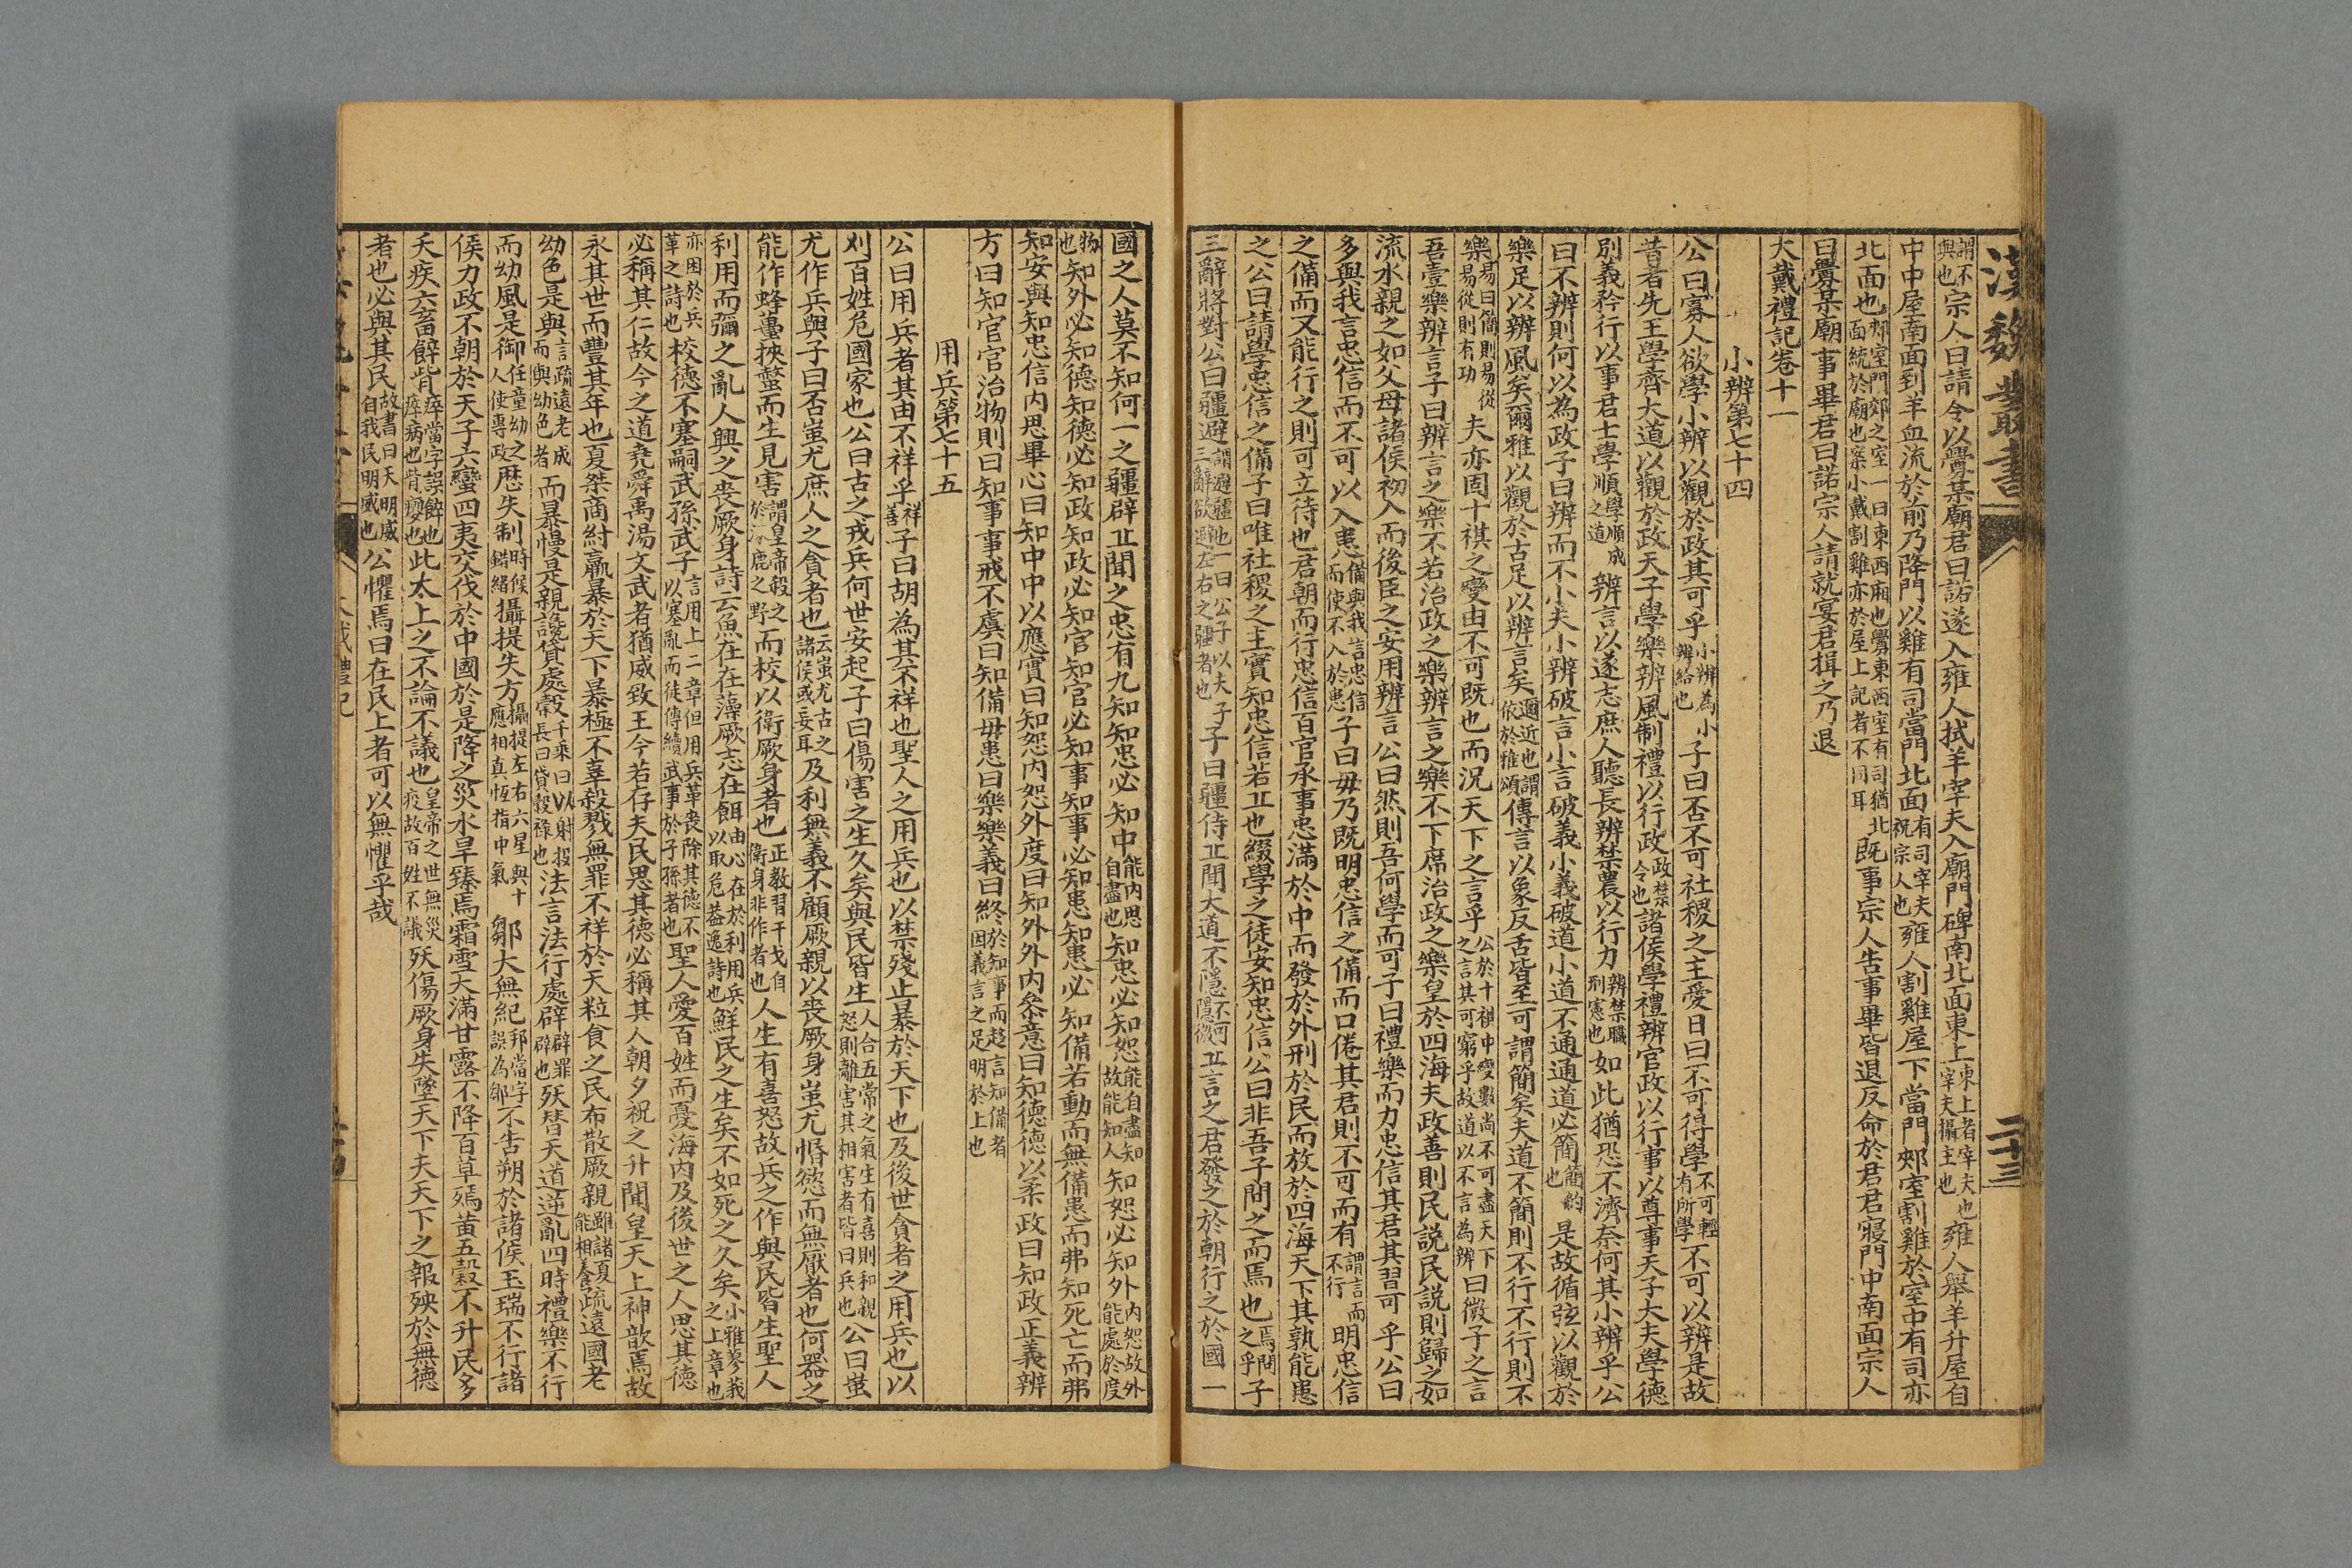 漢魏叢書
二十三
謂不與也宗人曰請令以釁某廟君曰諾遂入雍人拭羊宰夫入廟門碑南北面東上東上者宰夫也宰夫攝主也雍人舉羊升屋自
中中屋南面刲羊血流於前乃降門以雞有司當門北面有司宰夫祝宗人也雍人割雞屋下當門郟室割雞於室中有司亦
北面也郟室門郊之室一曰東西廂也釁東西室有司猶北面統於廟也案小戴割雞亦於屋上記者不同耳既事宗人告事畢皆退反命於君君寢門中南面宗人
曰釁某廟事畢君曰諾宗人請就宴君揖之乃退
大戴禮記卷十一
小辨第七十四
公曰寡人欲學小辨以觀於政其可乎小辨為小辨給也子曰否不可社稷之主愛日日不可得學不可輕有所學不可以辨是故
昔者先王學齊大道以觀於政天子學樂辨風制禮以行政政禁令也諸侯學禮辨官政以行事以尊事天子大夫學德
別義矜行以事君士學順學順成之道辨言以遂志庶人聽長辨禁農以行力辨禁職刑憲也如此猶恐不濟奈何其小辨乎公
曰不辨則何以為政子曰辨而不小夫小辨破言小言破義小義破道小道不通通道必簡簡約也是故循弦以觀於
樂足以辨風矣爾雅以觀於古足以辨言矣邇近也謂依於雅頌傳言以象反舌皆至可謂簡矣夫道不簡則不行不行則不
樂易曰簡則易從易從則有功夫亦固十祺之變由不可既也而況天下之言乎公於十祺中變數尚不可盡天下之言其可窮乎故道以不言為辨曰微子之言
吾壹樂辨言子曰辨言之樂不若治政之樂辨言之樂不下席治政之樂皇於四海夫政善則民說民說則歸之如
流水親之如父母諸侯初入而後臣之安用辨言公曰然則吾何學而可子曰禮樂而力忠信其君其習可乎公曰
多與我言忠信而不可以入患備與我言忠信而使不入於患子曰毋乃既明忠信之備而口倦其君則不可而有謂言而不行明忠信
之備而又能行之則可立待也君朝而行忠信百官承事忠滿於中而發於外刑於民而放於四海天下其孰能患
之公曰請學忠信之備子曰唯社稷之主實知忠信若丘也綴學之徒安知忠信公曰非吾子問之而焉也焉問之乎子
三辭將對公曰疆避謂避疆也一曰公子以夫子三辭欲避左右之疆者也子曰疆侍丘聞大道不隱不可隱微丘言之君發之於朝行之於國一
國之人莫不知何一之疆辟丘聞之忠有九知知忠必知中能內思自盡也知忠必知恕能自盡知故能知人知恕必知外內恕故外能處於度
物也知外必知德知德必知政知政必知官知官必知事知事必知患知患必知備若動而無備患而弗知死亡而弗
知安與知忠信內思畢心曰知中中以應實曰知恕內恕外度曰知外外內參意曰知德德以柔政曰知政正義辨
方曰知官官治物則曰知事事戒不虞曰知備毋患曰樂樂義曰終於知事而起言知備者因義言之足明於上也
用兵第七十五
公曰用兵者其由不祥乎祥善子曰胡為其不祥也聖人之用兵也以禁殘止暴於天下也及後世貪者之用兵也以
刈百姓危國家也公曰古之戎兵何世安起子曰傷害之生久矣與民皆生人含五常之氣生有喜則和親怒則離害其相害者皆曰兵也公曰蚩
尤作兵與子曰否蚩尤庶人之貪者也云蚩尤古之諸侯或妄耳及利無義不顧厥親以喪厥身蚩尤惛慾而無厭者也何器之
能作蜂蠆挾螫而生見害謂皇帝殺之於涿鹿之野而校以衛厥身者也正教習干戈自衛身非作者也人生有喜怒故兵之作與民皆生聖人
利用而彌之亂人興之喪厥身詩云魚在在藻厥志在餌由心在於利用兵以取危蓋逸詩也鮮民之生矣不如死之久矣小雅蓼莪之上章也
亦困於兵革之詩也校德不塞嗣武孫武子言用上二章但用兵革喪除其德不以塞亂而徒傳續武事於子孫者也聖人愛百姓而憂海內及後世之人思其德
必稱其仁故今之道堯舜禹湯文武者猶威致王今若存夫民思其德必稱其人朝夕祝之升聞皇天上神歆焉故
永其世而豐其年也夏桀商紂羸暴於天下暴極不辜殺戮無罪不祥於天粒食之民布散厥親雖諸夏能相養疏遠國老
幼色是與言疏遠老成而與幼色者而暴慢是親讒貸處穀千乘曰以射投長曰貸穀祿也法言法行處辟辟罪辟也殀替天道逆亂四時禮樂不行
而幼風是御任童幼之人使專政歷失制時候錯緒攝提失方攝提左右六星與十應相真恆指中氣鄒大無紀邦當字誤為鄒不告朔於諸侯玉瑞不行諸
侯力政不朝於天子六蠻四夷交伐於中國於是降之災水旱臻焉霜雪大滿甘露不降百草殤黃五穀不升民多
夭疾六畜餼眥瘁當字誤餼也瘁病也眥癭也此太上之不論不議也皇帝之世無災疫故百姓不議殀傷厥身失墜天下夫天下之報殃於無德
者也必與其民故書曰天明威自我民明威也公懼焉曰在民上者可以無懼乎哉
大戴禮記